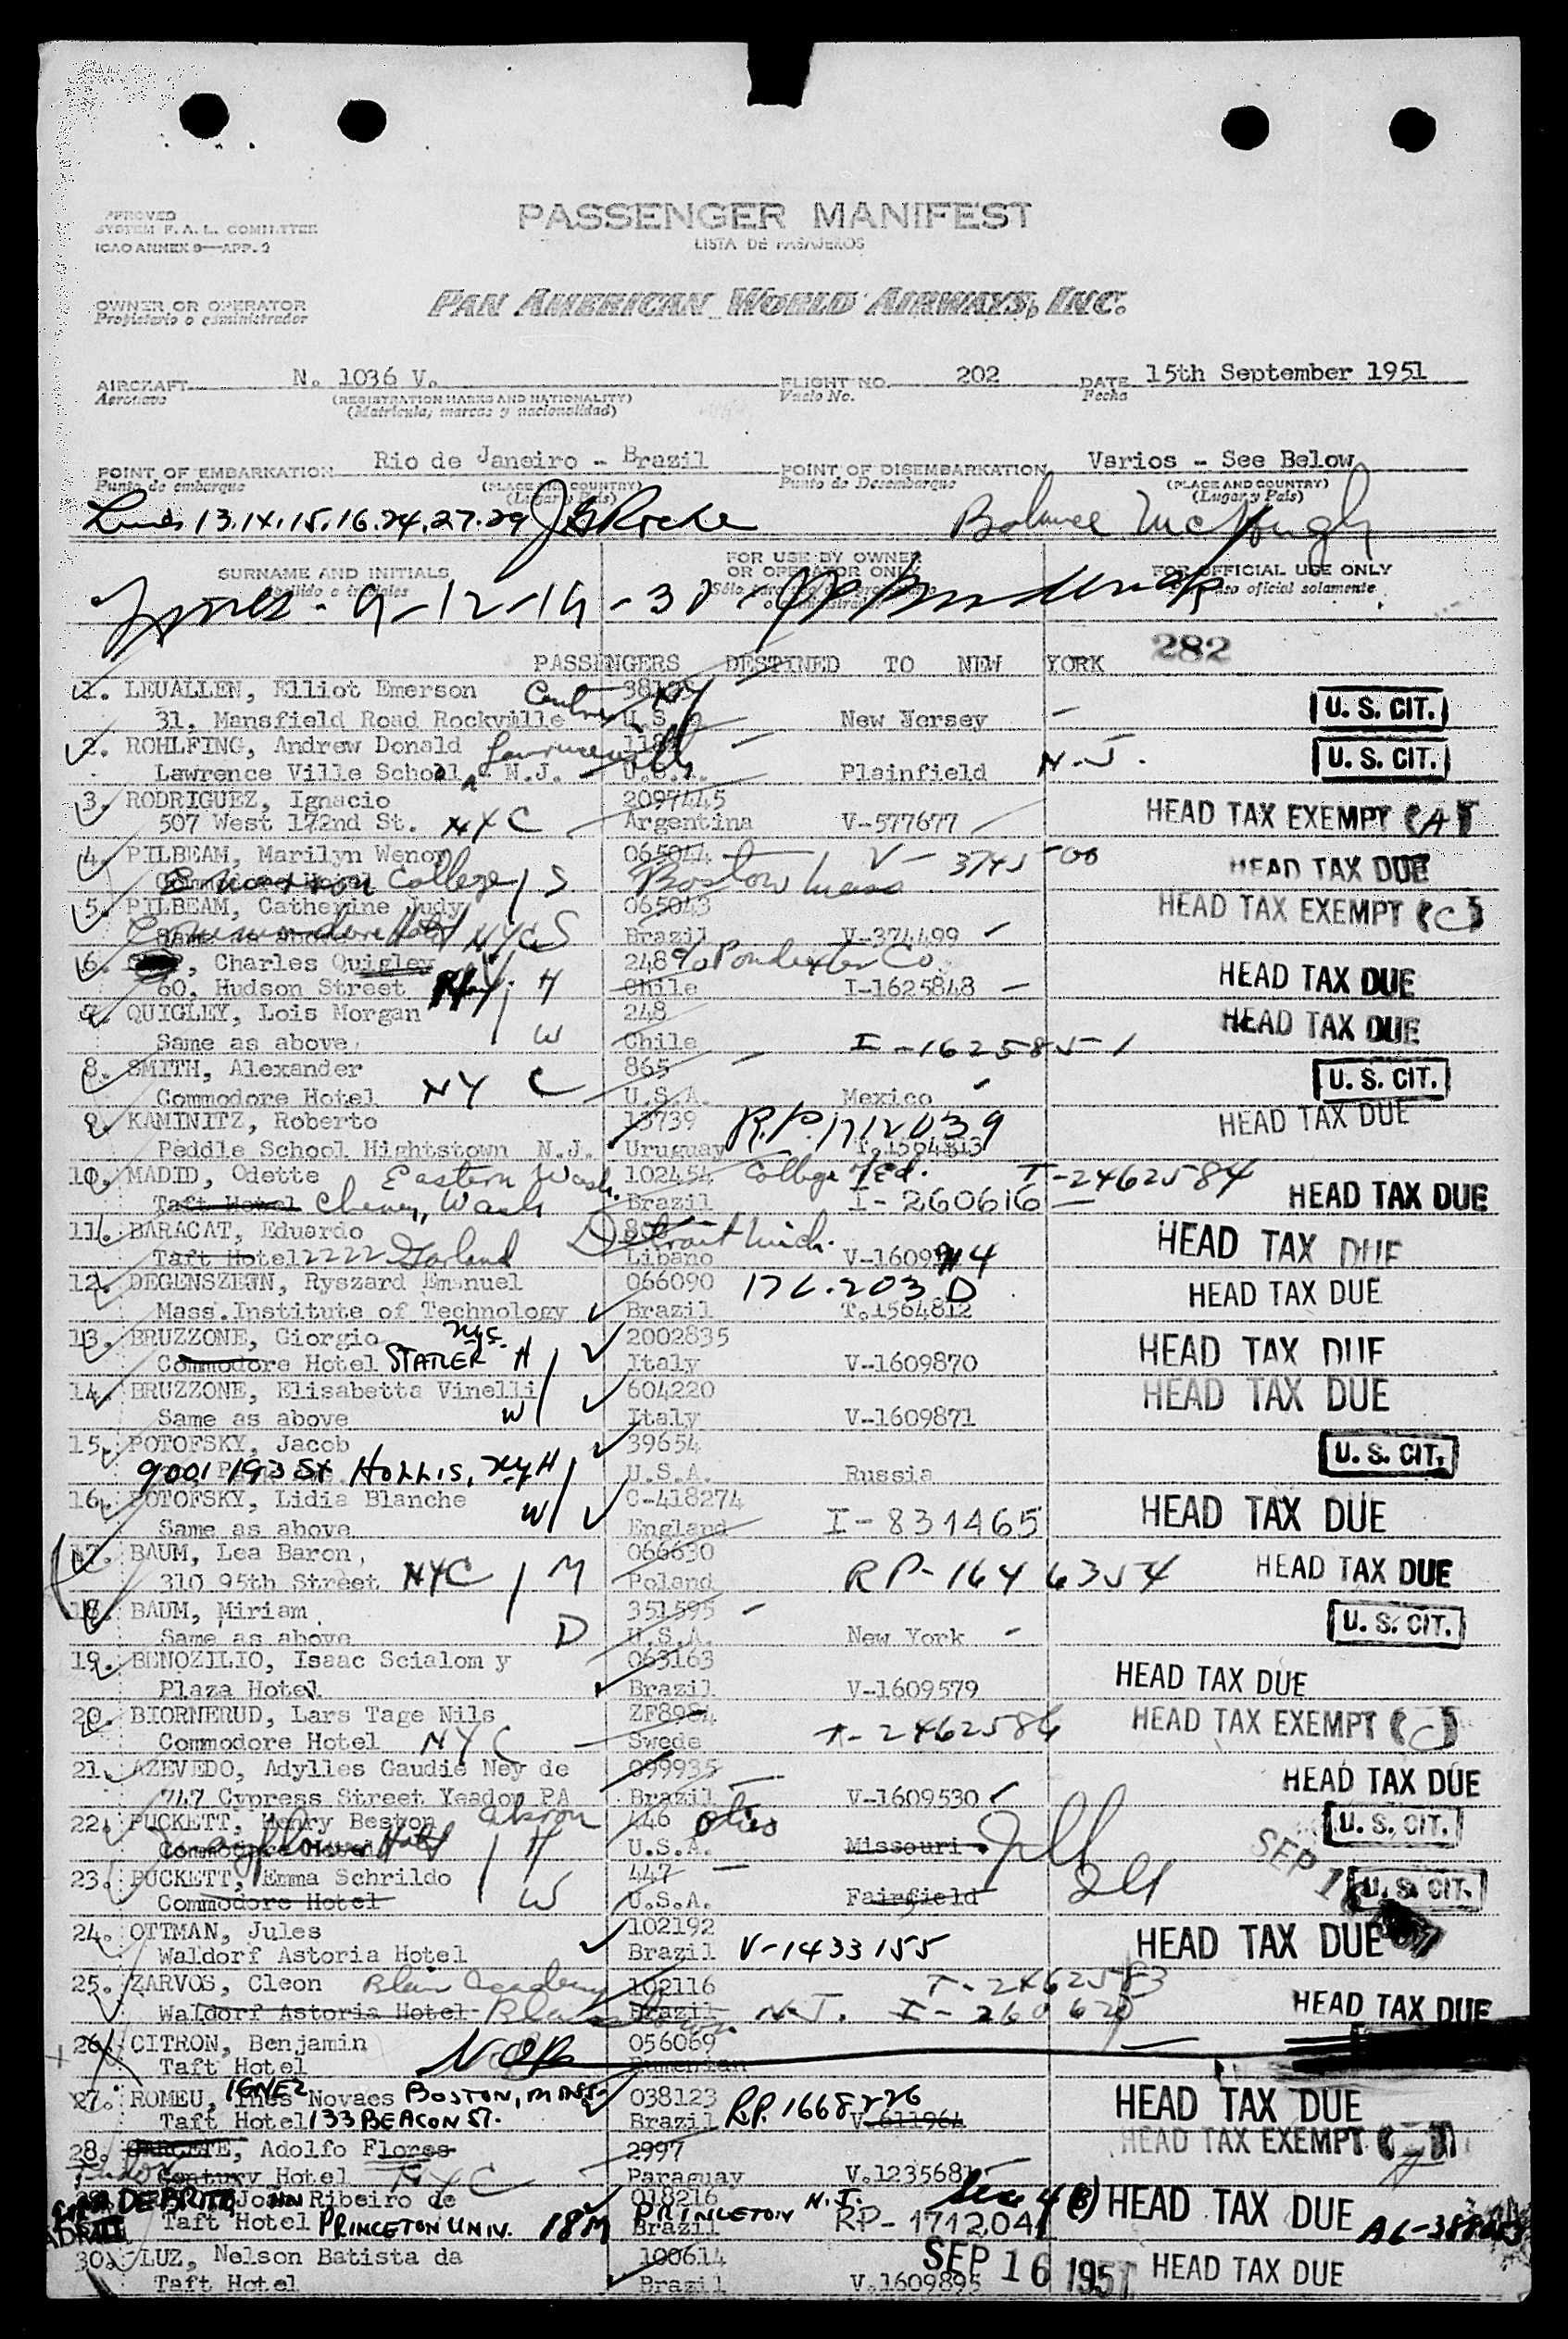 APPROVED
SYSTEM F. A. L. COMMITTEE
ICAO ANNEX 9—APP. 2
PASSENGER MANIFEST
LISTA DE PASAJEROS
OWNER OR OPERATOR
Propietario o administrador
PAN AMERICAN WORLD AIRWAYS, INC.
AIRCRAFT N. 1036 V. FLIGHT NO. 202 DATE 15th September 1951
Aeronave (REGISTRATION MARKS AND NATIONALITY) Vuelo No. Fecha
(Matricula, marcas y nacionalidad)
POINT OF EMBARKATION Rio de Janeiro - Brazil POINT OF DISEMBARKATION Varios - See Below
Punto de embarque (PLACE AND COUNTRY) Punto de Desembarque (PLACE AND COUNTRY)
(Lugar y Pais) (Lugar y Pais)
Lines 13.14.15.16.24.27.29 Balance
SURNAME AND INITIALS FOR USE BY OWNER OR OPERATOR ONLY FOR OFFICIAL USE ONLY
oficial solamente
9-12-19-30
282
PASSENGERS DESTINED TO NEW YORK
1. LEUALLEN, Elliot Emerson Centre NY
31, Mansfield Road Rockville U.S.A. New Jersey U. S. CIT.
2. ROHLFING, Andrew Donald
Lawrence Ville School N.J. U.S.A. Plainfield N.J. U. S. CIT.
3. RODRIGUEZ, Ignacio 2097445
507 West 172nd St. NYC Argentina V-577677 HEAD TAX EXEMPT (A)
4. PILBEAM, Marilyn Wenor 065044 V-374500 HEAD TAX DUE
College S Boston Mass
5. PILBEAM, Catherine Judy 065043 HEAD TAX EXEMPT (C)
Commodore Hotel NYC S Brazil V-374499
6. , Charles Quigley 248 % Pondexter Co HEAD TAX DUE
60, Hudson Street H Chile I-1625848
7. QUIGLEY, Lois Morgan 248 HEAD TAX DUE
Same as above W Chile I-1625851
8. SMITH, Alexander 865 U. S. CIT.
Commodore Hotel NYC U.S.A. Mexico
9. KAMINITZ, Roberto 13739 R.P. 1712039 HEAD TAX DUE
Peddle School Hightstown N.J. Uruguay T.1564813
10. MADID, Odette Eastern Wash. 102454 College of Ed. T-2462584
Taft Hotel Cheney, Wash Brazil I-260616 HEAD TAX DUE
11. BARACAT, Eduardo Detroit Mich. HEAD TAX DUE
Taft Hotel 2222 Garland Libano
12. DEGENSZEJN, Ryszard Emanuel 066090 HEAD TAX DUE
Mass. Institute of Technology Brazil T.1564812
13. BRUZZONE, Giorgio NYC 2002835 HEAD TAX DUE
Commodore Hotel STATLER H Italy V-1609870
14. BRUZZONE, Elisabetta Vinelli 604220 HEAD TAX DUE
Same as above W Italy V-1609871
15. POTOFSKY, Jacob 39654 U. S. CIT.
9001 193 St HOLLIS, NY H U.S.A. Russia
16. POTOFSKY, Lidia Blanche C-418274 HEAD TAX DUE
Same as above W England I-831465
17. BAUM, Lea Baron 066630
310 95th Street NYC M Poland RP-1646354 HEAD TAX DUE
18. BAUM, Miriam 351595 U. S. CIT.
Same as above D U.S.A. New York
19. BENOZILIO, Isaac Scialom y 063163 HEAD TAX DUE
Plaza Hotel Brazil V-1609579
20. BIORNERUD, Lars Tage Nils ZF8984 HEAD TAX EXEMPT (C)
Commodore Hotel NYC Swede T-2462586
21. AZEVEDO, Adylles Gaudie Ney de 099935 HEAD TAX DUE
747 Cypress Street Yeadon PA Brazil V-1609530
22. PUCKETT, Henry Beston Akron 446 Ohio U. S. CIT.
Mayflower Hotel H U.S.A. Missouri
23. PUCKETT, Emma Schrildo 447 SEP 1 U. S. CIT.
Commodore Hotel W U.S.A. Fairfield
24. OTTMAN, Jules 102192 HEAD TAX DUE
Waldorf Astoria Hotel Brazil V-1433155
25. ZARVOS, Cleon Blair Academy 102116 T-2462583
Waldorf Astoria Hotel Blairstown Brazil N.J. I-260620 HEAD TAX DUE
26. CITRON, Benjamin 056069
Taft Hotel NOB Rumenian
27. ROMEU, IGNEZ Ines Novaes BOSTON, MASS. 038123 RP. 1668226 HEAD TAX DUE
Taft Hotel 133 BEACON ST. Brazil V-611964
28. Adolfo Flores 2997 HEAD TAX EXEMPT
Tudor Century Hotel NYC Paraguay V.1235681
29. DE BRITO, Ribeiro de 018216 PRINCETON N.J. HEAD TAX DUE
Taft Hotel PRINCETON UNIV. 18 M Brazil RP-1712041
30. LUZ, Nelson Batista da 100614 SEP 16 1951 HEAD TAX DUE
Taft Hotel Brazil V.1609895